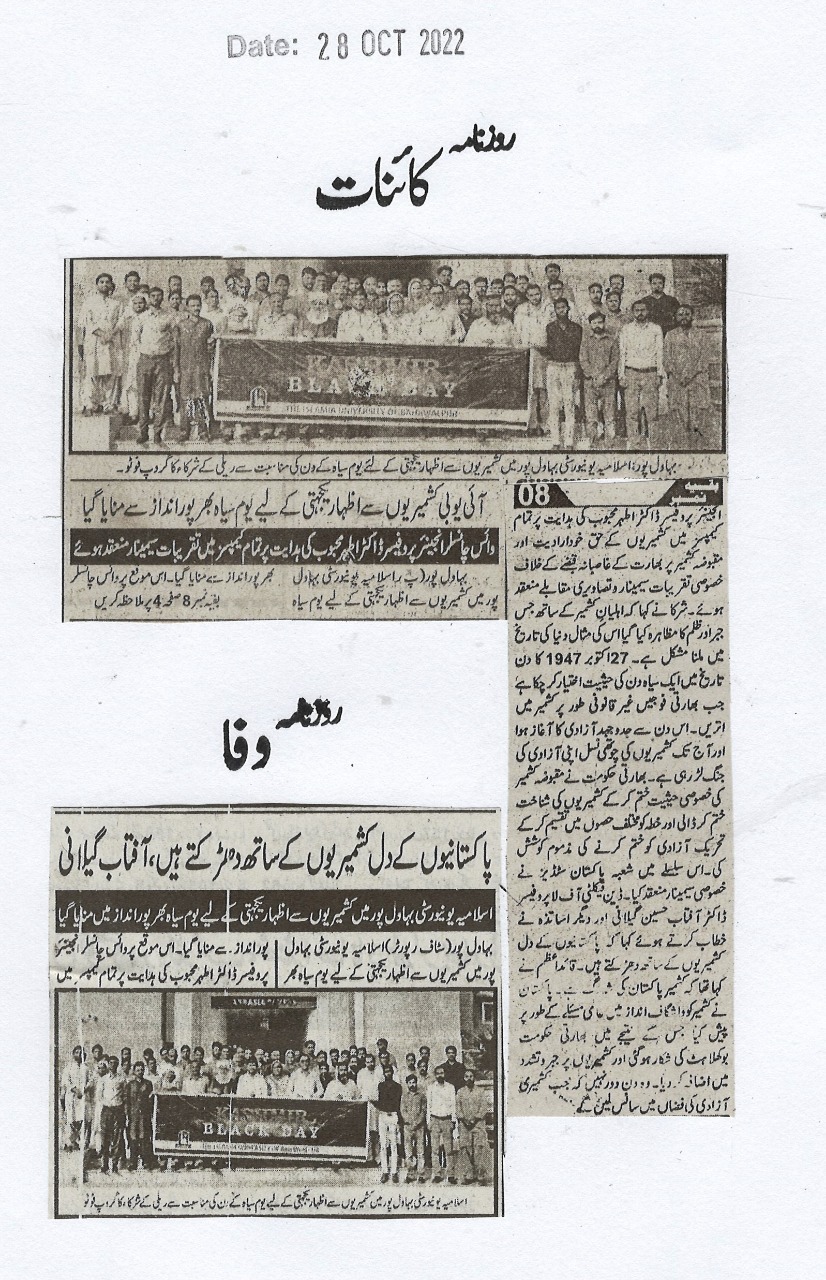 Date: 28 OCT 2022
روزنامہ
کائنات
KASHMIR
BLACK DAY
THE ISLAMIA UNIVERSITY OF BAHAWALPUR
بہاول پور: اسلامیہ یونیورسٹی بہاول پور میں کشمیریوں سے اظہار یکجہتی کے لئے یوم سیاہ کے دن کی مناسبت سے ریلی کے شرکاء کا گروپ فوٹو۔
آئی یو بی کشمیریوں سے اظہار یکجہتی کے لیے یوم سیاہ بھر پور انداز سے منایا گیا
وائس چانسلر انجینئر پروفیسر ڈاکٹر اطہر محبوب کی ہدایت پر تمام کیمپسز میں تقریبات سیمینار منعقد ہوئے
بہاول پور (پ ر) اسلامیہ یونیورسٹی بہاول
پور میں کشمیریوں سے اظہار یکجہتی کے لیے یوم سیاہ
بھر پور انداز سے منایا گیا۔ اس موقع پر وائس چانسلر
بقیہ نمبر 8 صفحہ 4 پر ملاحظہ کریں
بقیہ نمبر 08
انجینئر پروفیسر ڈاکٹر اطہر محبوب کی ہدایت پر تمام
کیمپسز میں کشمیریوں کے حق خودارادیت اور
مقبوضہ کشمیر پر بھارت کے غاصبانہ قبضے کے خلاف
خصوصی تقریبات سیمینار و تصاویری مقابلے منعقد
ہوئے۔ شرکا نے کہا کہ اہلیان کشمیر کے ساتھ جس
جبر اور ظلم کا مظاہرہ کیا گیا اس کی مثال دنیا کی تاریخ
میں ملنا مشکل ہے۔ 27 اکتوبر 1947 کا دن
تاریخ میں ایک سیاہ دن کی حیثیت اختیار کر چکا ہے
جب بھارتی فوجیں غیر قانونی طور پر کشمیر میں
اتریں۔ اس دن سے جدوجہد آزادی کا آغاز ہوا
اور آج تک کشمیریوں کی چوتھی نسل اپنی آزادی کی
جنگ لڑ رہی ہے۔ بھارتی حکومت نے مقبوضہ کشمیر
کی خصوصی حیثیت ختم کر کے کشمیریوں کی شناخت
ختم کر ڈالی اور خطہ کو مختلف حصوں میں تقسیم کر کے
تحریک آزادی کو ختم کرنے کی مذموم کوشش
کی۔ اس سلسلے میں شعبہ پاکستان سٹڈیز نے
خصوصی سیمینار منعقد کیا۔ ڈین فیکلٹی آف لا پروفیسر
ڈاکٹر آفتاب حسین گیلانی اور دیگر اساتذہ نے
خطاب کرتے ہوئے کہا کہ پاکستانیوں کے دل
کشمیریوں کے ساتھ دھڑکتے ہیں۔ قائداعظم نے
کہا تھا کہ کشمیر پاکستان کی شہ رگ ہے۔ پاکستان
نے کشمیر کو واشگاف انداز میں عالمی مسئلے کے طور پر
پیش کیا جس کے نتیجے میں بھارتی حکومت
بوکھلاہٹ کی شکار ہو گئی اور کشمیریوں پر جبر و تشدد
میں اضافہ کر دیا۔ وہ دن دور نہیں کہ جب کشمیری
آزادی کی فضاں میں سانس لیں گے۔
روزنامہ
وفا
پاکستانیوں کے دل کشمیریوں کے ساتھ دھڑکتے ہیں، آفتاب گیلانی
اسلامیہ یونیورسٹی بہاول پور میں کشمیریوں سے اظہار یکجہتی کے لیے یوم سیاہ بھر پور انداز میں منایا گیا
بہاول پور (سٹاف رپورٹر) اسلامیہ یونیورسٹی بہاول
پور میں کشمیریوں سے اظہار یکجہتی کے لیے یوم سیاہ بھر
پور انداز سے منایا گیا۔ اس موقع پر وائس چانسلر انجینئر
پروفیسر ڈاکٹر اطہر محبوب کی ہدایت پر تمام کیمپسز میں
KASHMIR
BLACK DAY
THE ISLAMIA UNIVERSITY OF BAHAWALPUR
اسلامیہ یونیورسٹی بہاول پور میں کشمیریوں سے اظہار یکجہتی کے لیے یوم سیاہ کے دن کی مناسبت سے ریلی کے شرکاء کا گروپ فوٹو